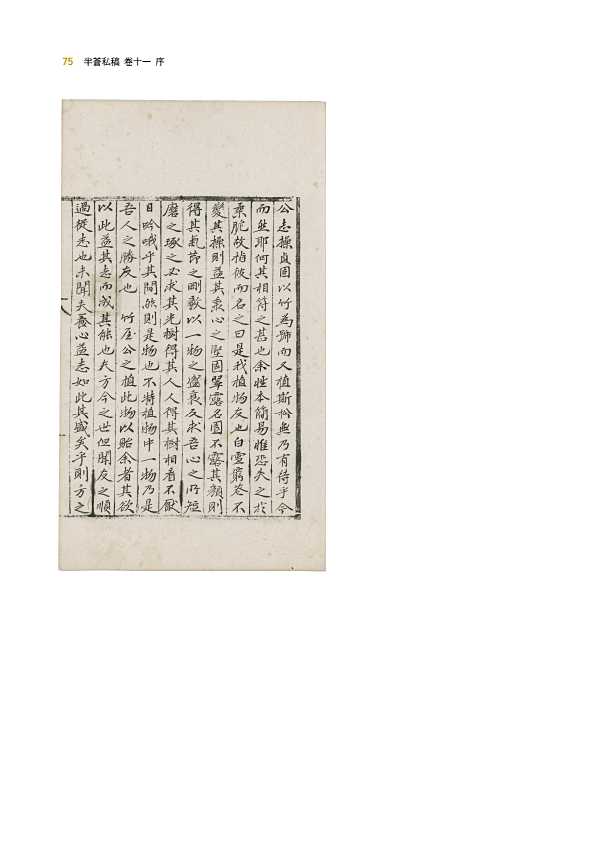 75 半蒼私稿 卷十一 序
公志操貞固以竹為號而又植斯松無乃有待乎今
而然耶何其相符之甚也余性本簡易惟恐失之於
柔脆故指彼而名之曰是我植物友也自雪窮谷不
變其操則益其貞心之堅固翠露名園不露其顏則
得其氣節之剛毅以一物之盛衰反求吾心之所短
磨之琢之必求其光樹得其人人得其樹相看不厭
日吟哦乎其間然則是物也不特植物中一物乃是
吾人之勝友也 竹屋公之植此物以貽余者其欲
以此益其志而成其能也夫方今之世但聞友之順
過從志也未聞夫養心益志如此其盛矣乎則方之